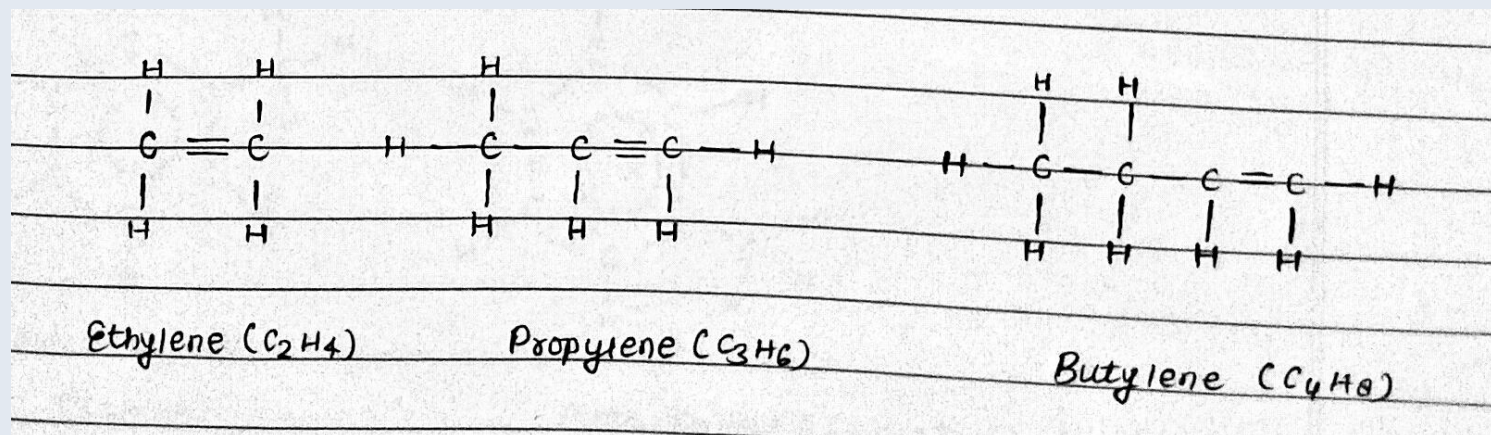 H H H H H
C ≡ C H — C — C ≡ C — H H — C — C — C = C — H
H H H H H H H H H
Ethylene (C2H4) Propylene (C3H6) Butylene (C4H8)